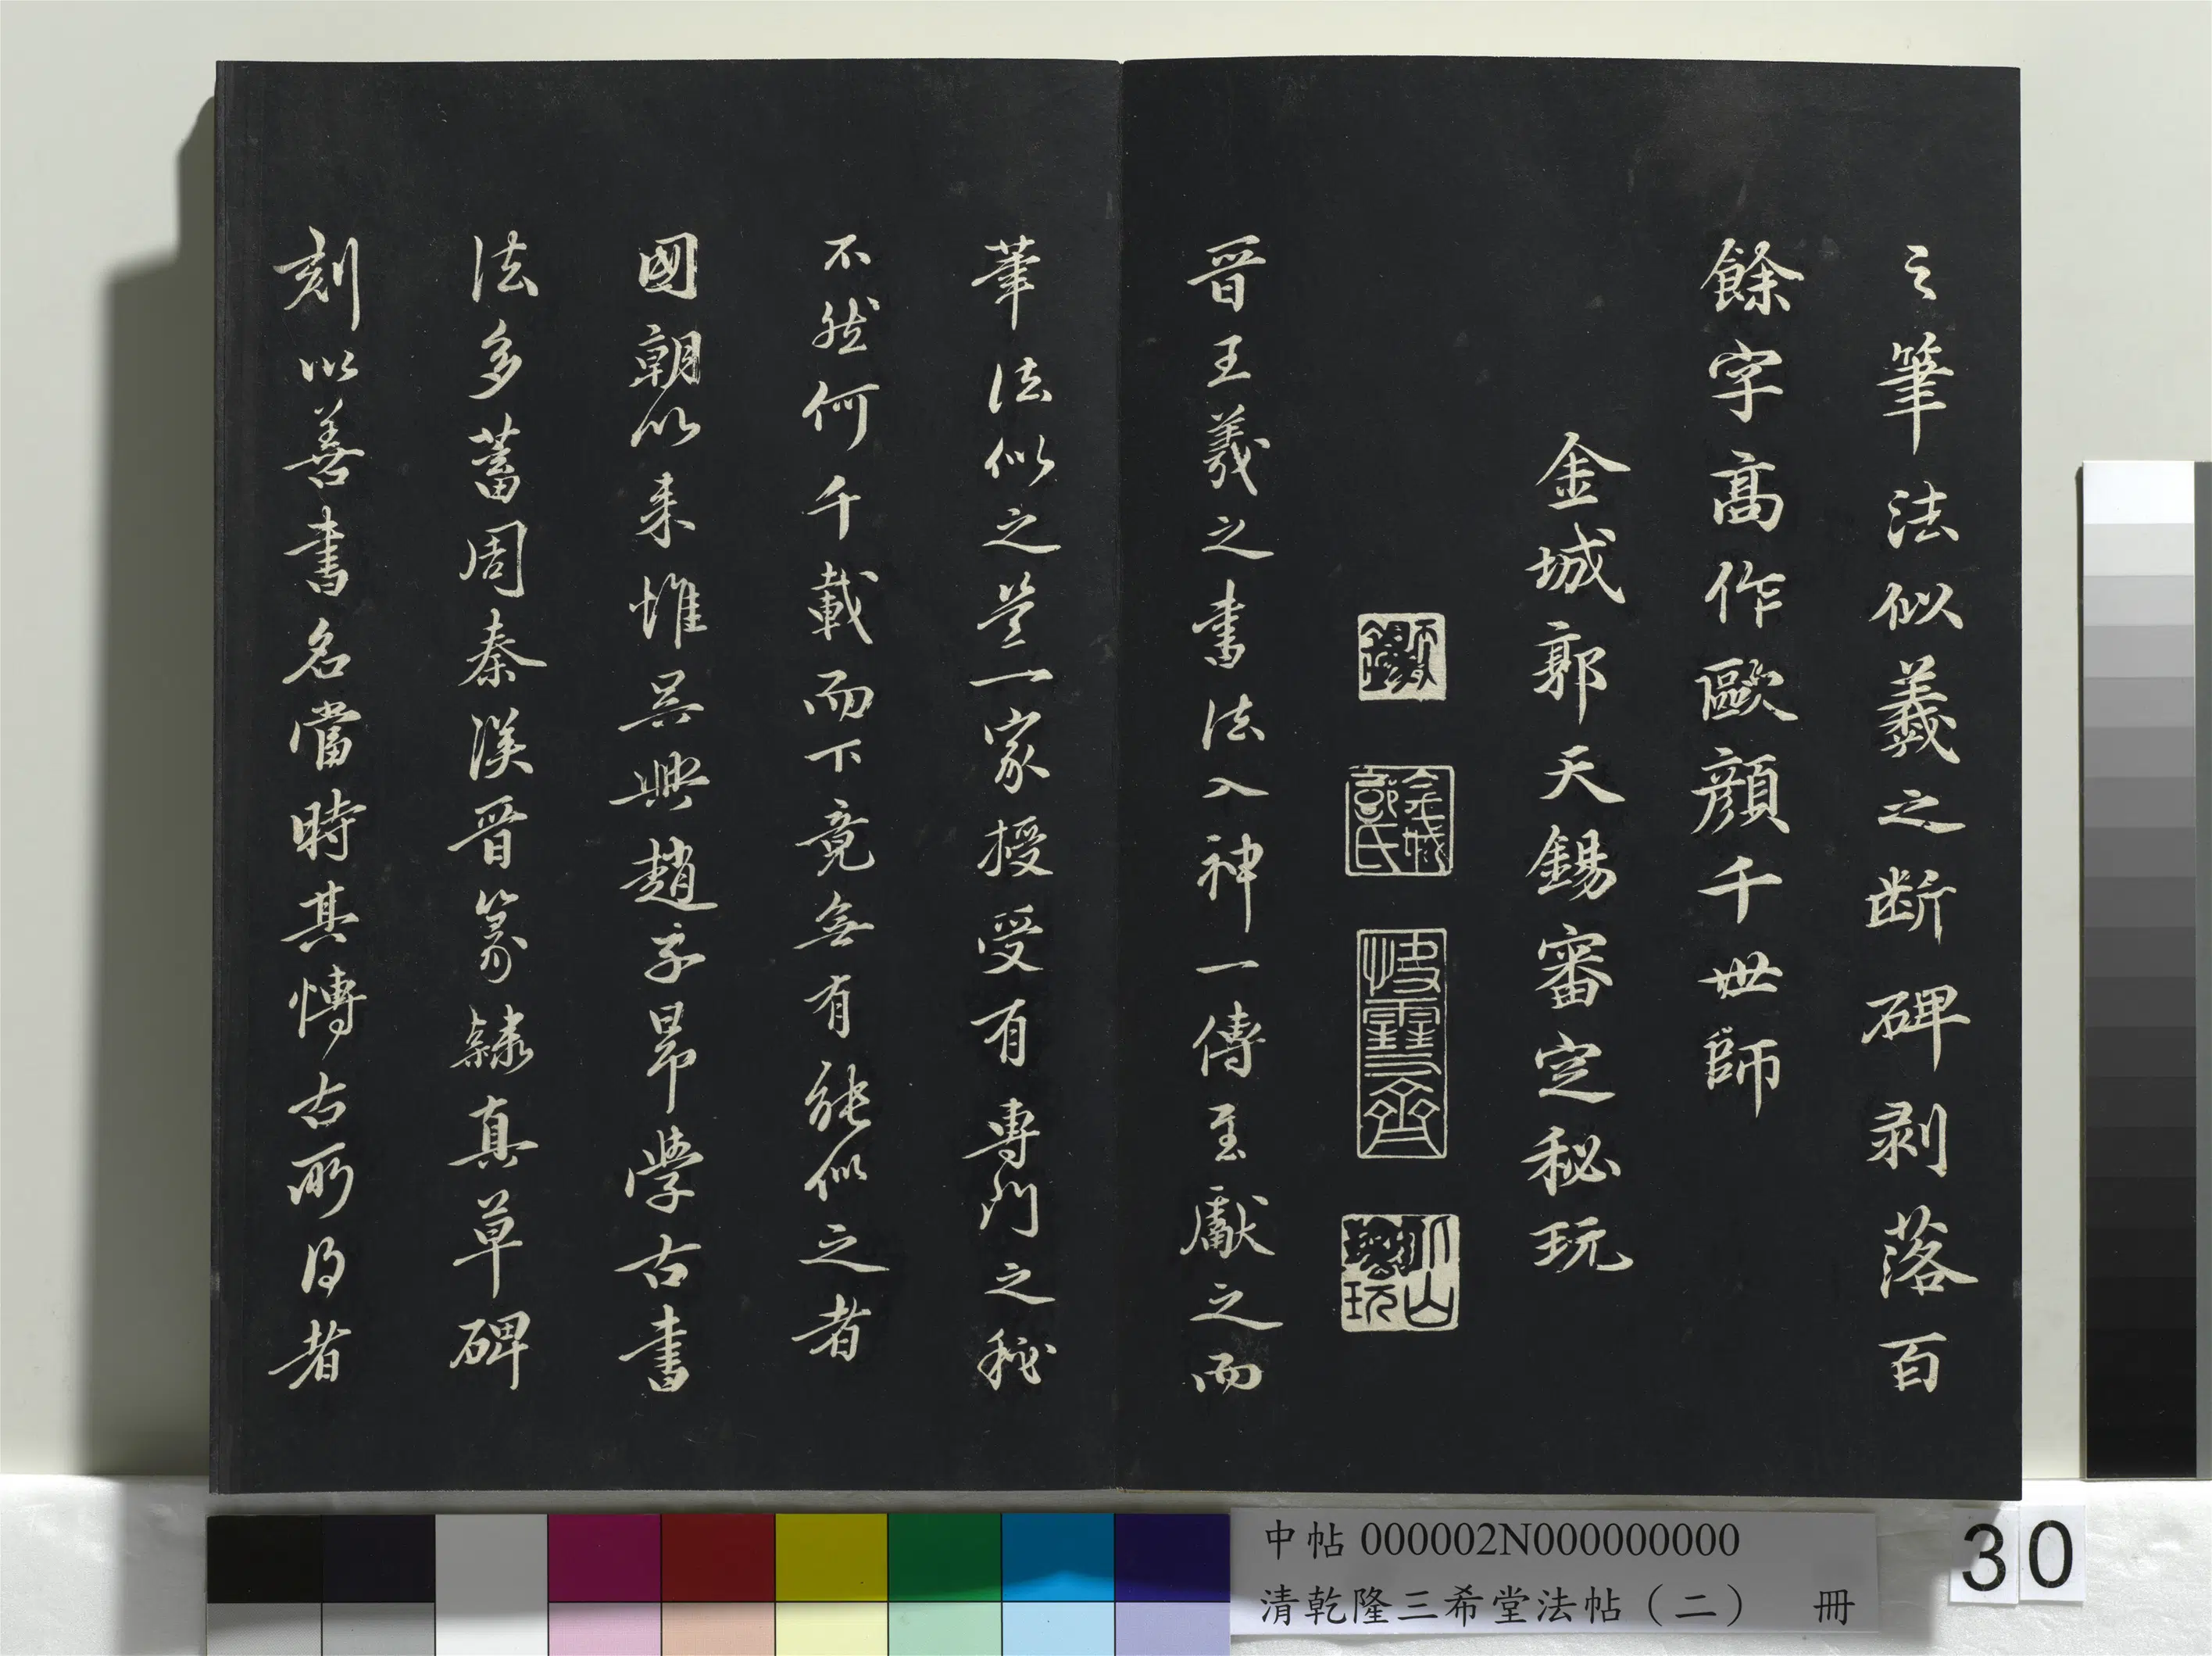 之筆法似羲之断碑剥落百
餘字高作歐顏千世師
金城郭天錫審定秘玩
天錫
金城郭氏
快雪齋
晋王羲之書法入神一傳至獻之而
筆法似之豈一家授受有專門之秘
不然何千載而下竟無有能似之者
國朝以来惟吳興趙子昂學古書
法多蓄周秦漢晋篆隸真草碑
刻以善書名當時其慱古所得者
中帖 000002N000000000
清乾隆三希堂法帖（二） 冊
30